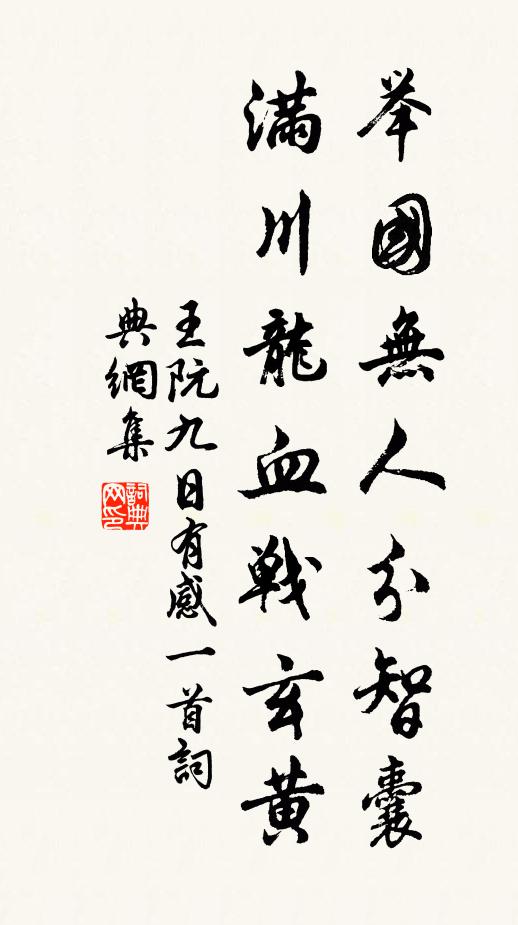 举國無人分智囊
滿川龍血戦玄黄
王阮九日有感一首詞
典網集
詞典
网印